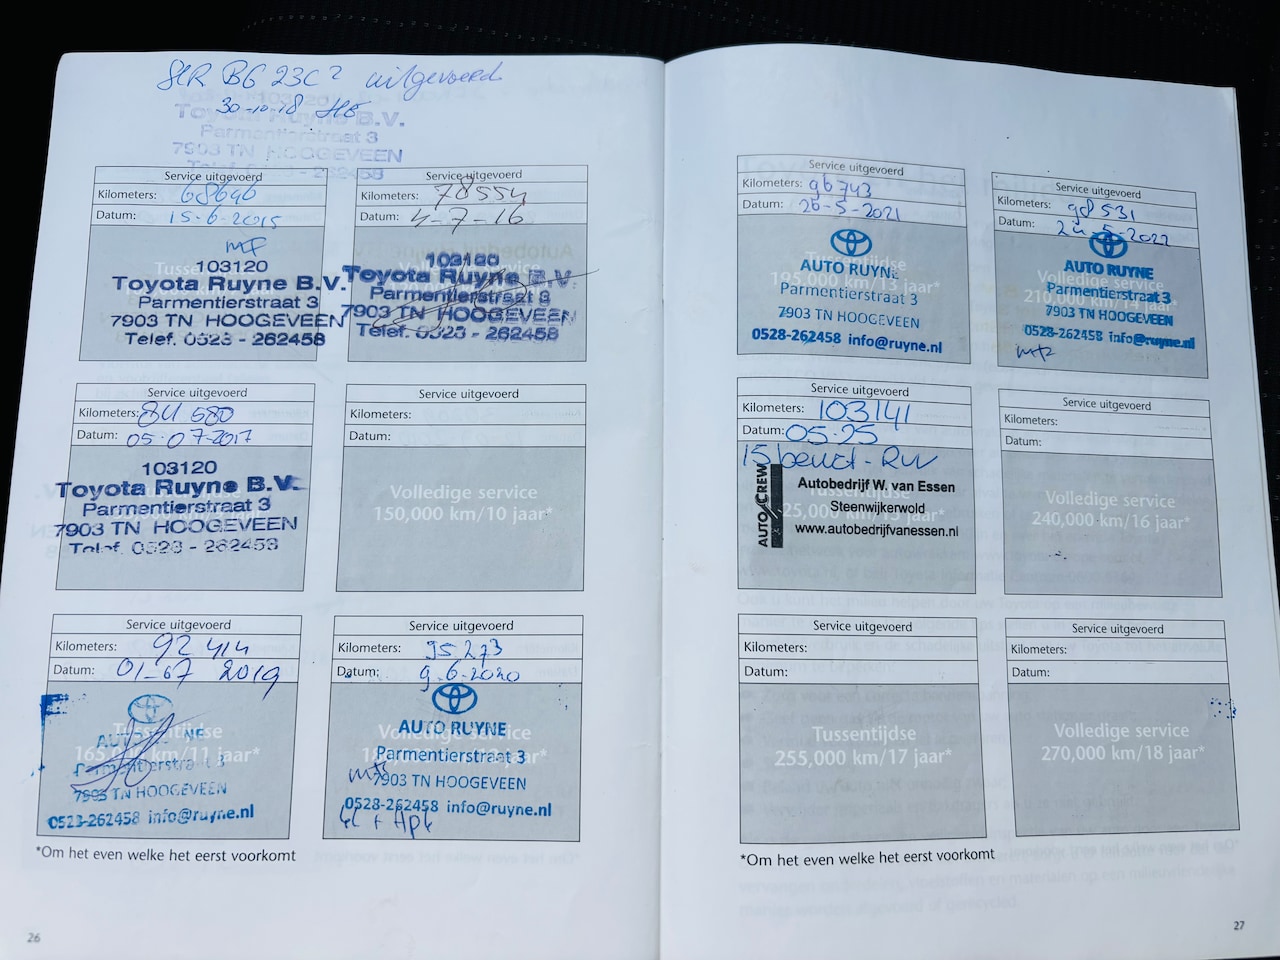 uitgevoerd
30-10-18
Toyota Ruyne B.V.
Parmentierstraat 3
7903 TN HOOGEVEEN
Service uitgevoerd
Kilometers: 68696
Datum: 15-6-2015
103120
Toyota Ruyne B.V.
Parmentierstraat 3
7903 TN HOOGEVEEN
Telef. 0523 - 262458
Service uitgevoerd
Kilometers: 78554
Datum: 4-7-16
103120
Toyota Ruyne B.V.
Parmentierstraat 3
7903 TN HOOGEVEEN
Telef. 0523 - 262458
Service uitgevoerd
Kilometers: 84 680
Datum: 05-07-2017
103120
Toyota Ruyne B.V.
Parmentierstraat 3
7903 TN HOOGEVEEN
Telef. 0523 - 262458
Service uitgevoerd
Kilometers:
Datum:
Volledige service
150,000 km/10 jaar*
Service uitgevoerd
Kilometers: 92 414
Datum: 01-07 2019
Tussentijdse
165,000 km/11 jaar*
Parmentierstraat 3
7903 TN HOOGEVEEN
0523-262458 info@ruyne.nl
Service uitgevoerd
Kilometers: 95 273
Datum: 9-6-2020
Volledige service
AUTO RUYNE
Parmentierstraat 3
7903 TN HOOGEVEEN
0528-262458 info@ruyne.nl
*Om het even welke het eerst voorkomt
26
Service uitgevoerd
Kilometers: 96743
Datum: 26-5-2021
Tussentijdse
195,000 km/13 jaar*
AUTO RUYNE
Parmentierstraat 3
7903 TN HOOGEVEEN
0528-262458 info@ruyne.nl
Service uitgevoerd
Kilometers: 98 531
Datum: 24-5-2022
Volledige service
210,000 km/14 jaar*
AUTO RUYNE
Parmentierstraat 3
7903 TN HOOGEVEEN
0528-262458 info@ruyne.nl
Service uitgevoerd
Kilometers: 103141
Datum: 05-25
AUTO CREW
Autobedrijf W. van Essen
Steenwijkerwold
www.autobedrijfvanessen.nl
Service uitgevoerd
Kilometers:
Datum:
Volledige service
240,000 km/16 jaar*
Service uitgevoerd
Kilometers:
Datum:
Tussentijdse
255,000 km/17 jaar*
Service uitgevoerd
Kilometers:
Datum:
Volledige service
270,000 km/18 jaar*
*Om het even welke het eerst voorkomt
27